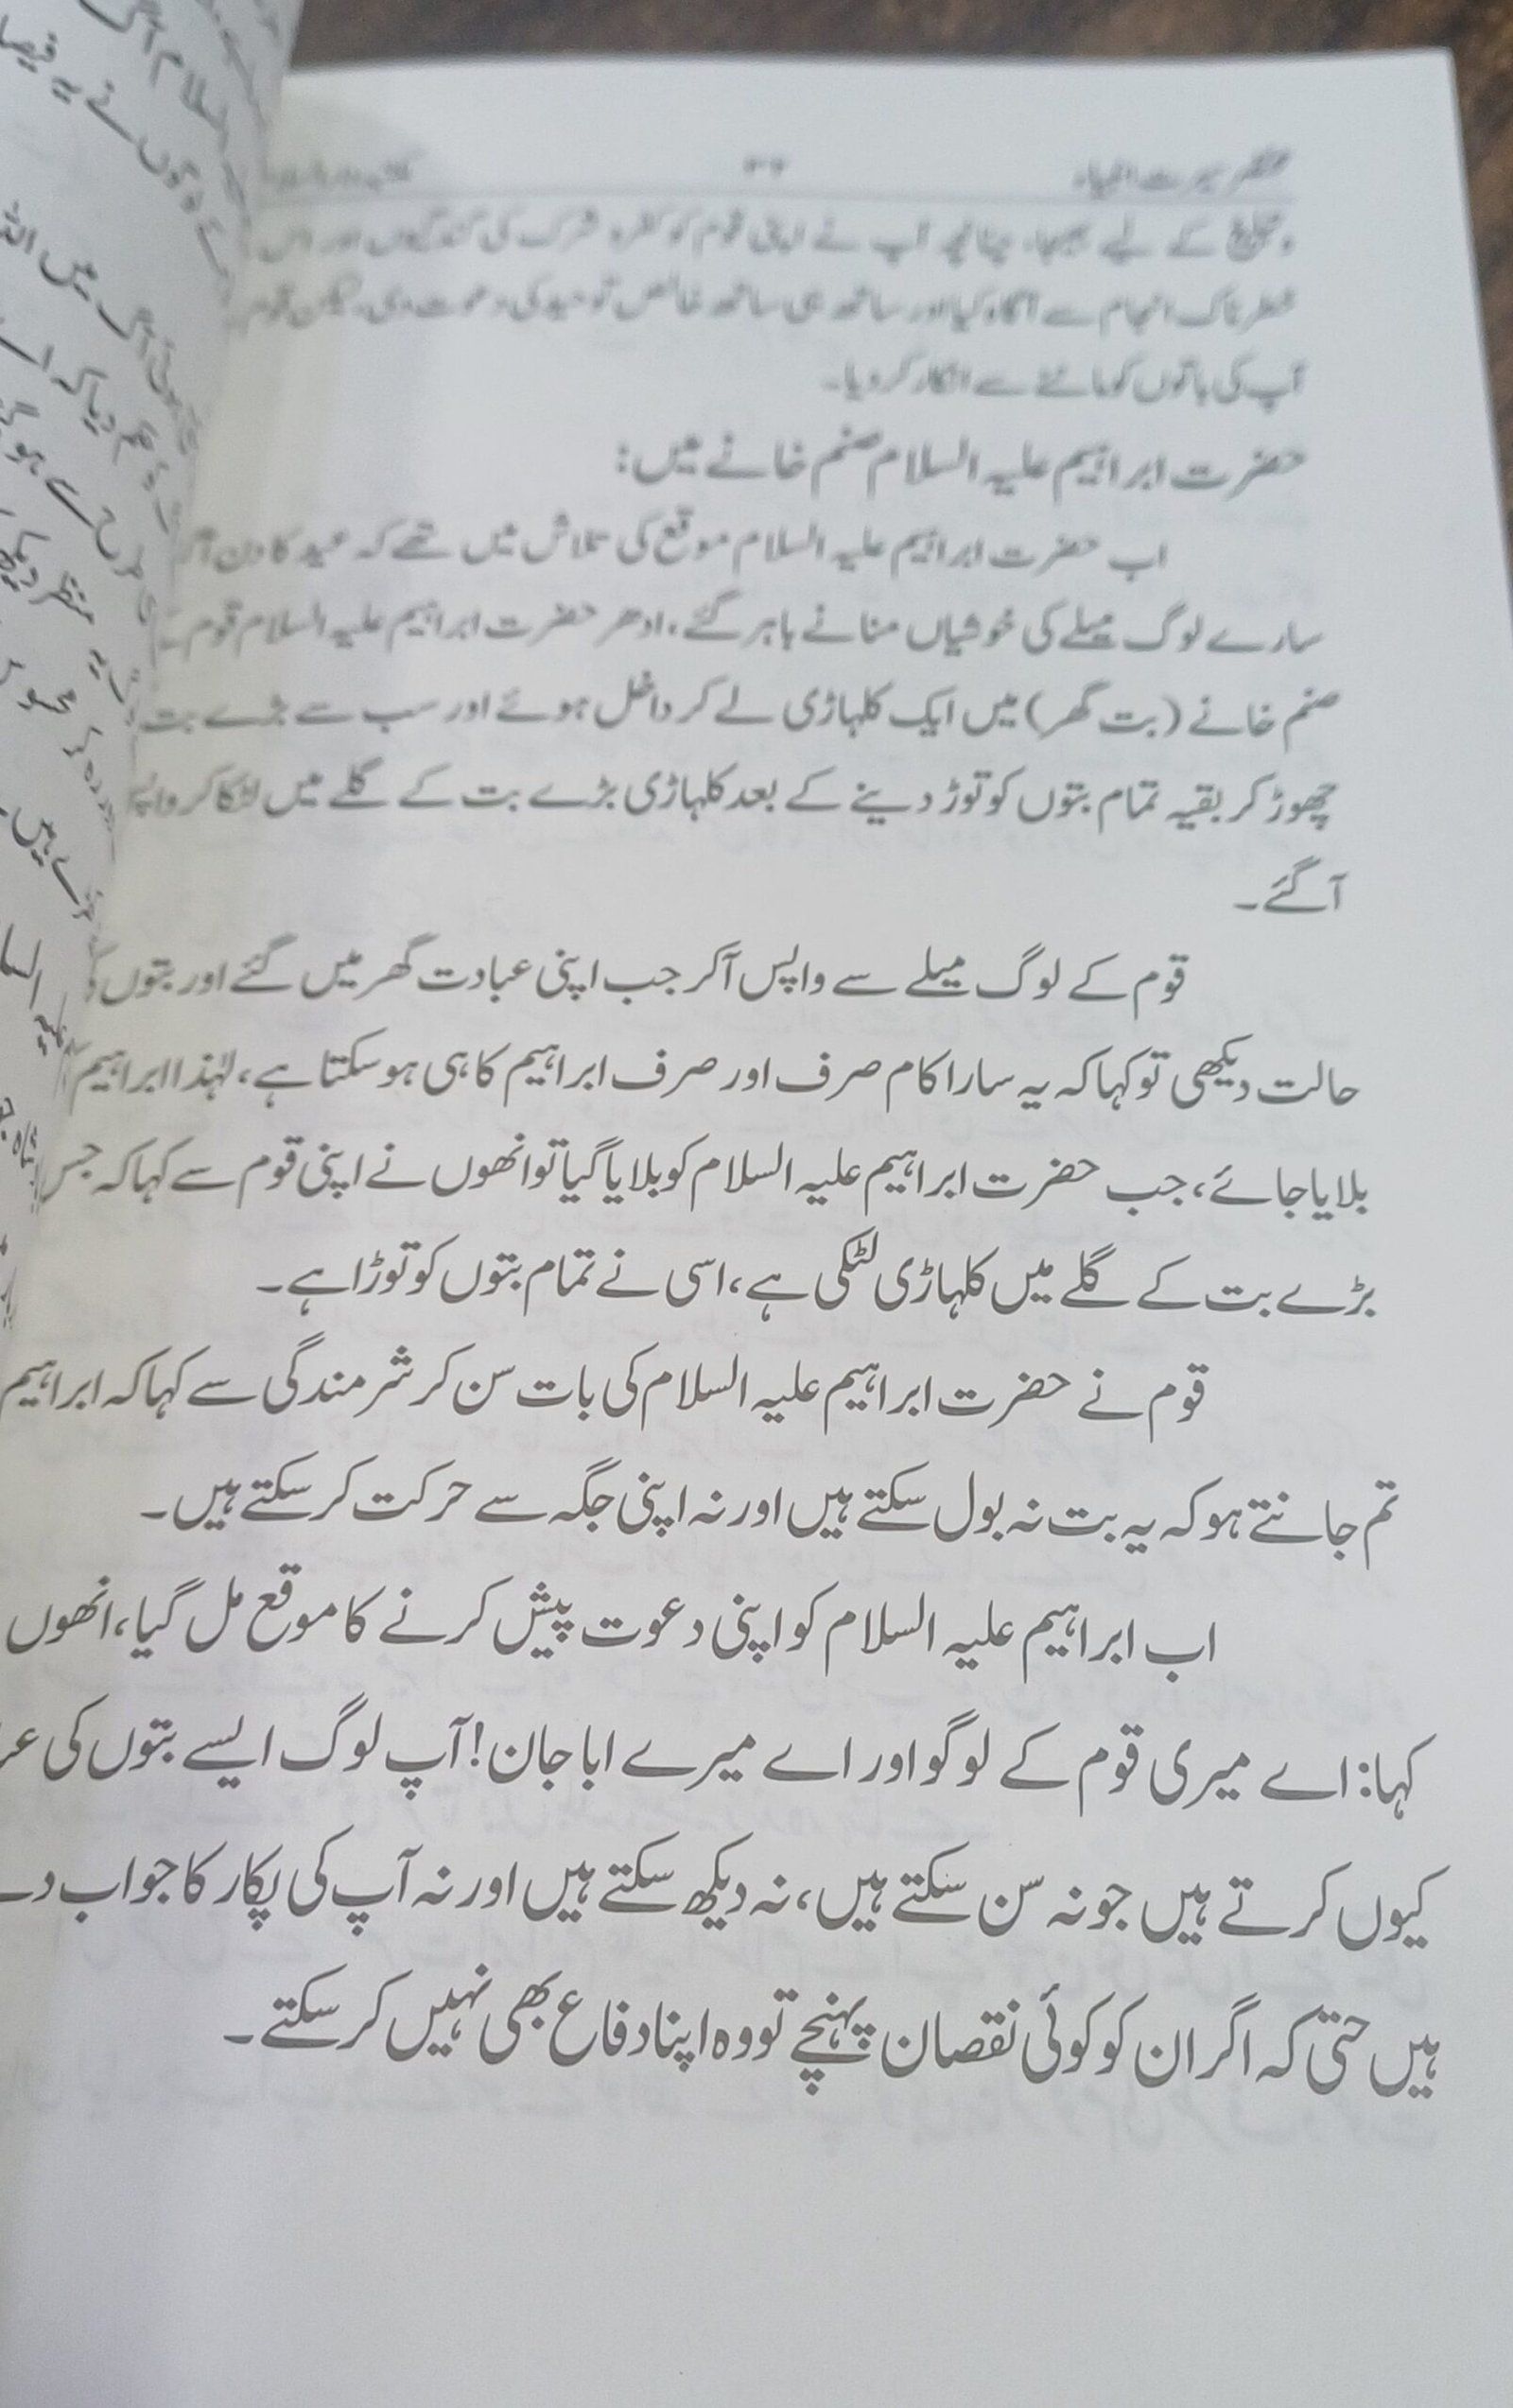 مختصر سیرت انبیاء
و تبلیغ کے لیے بھیجا، چنانچہ آپ نے اپنی قوم کو کفر و شرک کی گندگیوں اور اس
خطرناک انجام سے آگاہ کیا اور ساتھ ہی ساتھ خالص توحید کی دعوت دی، لیکن قوم
آپ کی باتوں کو ماننے سے انکار کر دیا۔
حضرت ابراہیم علیہ السلام صنم خانے میں:
اب حضرت ابراہیم علیہ السلام موقع کی تلاش میں تھے کہ عید کا دن
سارے لوگ میلے کی خوشیاں منانے باہر گئے، ادھر حضرت ابراہیم علیہ السلام قوم
صنم خانے (بت گھر) میں ایک کلہاڑی لے کر داخل ہوئے اور سب سے بڑے بت
چھوڑ کر بقیہ تمام بتوں کو توڑ دینے کے بعد کلہاڑی بڑے بت کے گلے میں لٹکا کر
آگئے۔
قوم کے لوگ میلے سے واپس آکر جب اپنی عبادت گھر میں گئے اور بتوں
حالت دیکھی تو کہا کہ یہ سارا کام صرف اور صرف ابراہیم کا ہی ہو سکتا ہے، لہٰذا ابراہیم
بلایا جائے، جب حضرت ابراہیم علیہ السلام کو بلایا گیا تو انھوں نے اپنی قوم سے کہا کہ جس
بڑے بت کے گلے میں کلہاڑی لٹکی ہے، اسی نے تمام بتوں کو توڑا ہے۔
قوم نے حضرت ابراہیم علیہ السلام کی بات سن کر شرمندگی سے کہا کہ ابراہیم
تم جانتے ہو کہ یہ بت نہ بول سکتے ہیں اور نہ اپنی جگہ سے حرکت کر سکتے ہیں۔
اب ابراہیم علیہ السلام کو اپنی دعوت پیش کرنے کا موقع مل گیا، انھوں
کہا: اے میری قوم کے لوگو اور اے میرے ابا جان! آپ لوگ ایسے بتوں کی
کیوں کرتے ہیں جو نہ سن سکتے ہیں، نہ دیکھ سکتے ہیں اور نہ آپ کی پکار کا جواب
ہیں حتیٰ کہ اگر ان کو کوئی نقصان پہنچے تو وہ اپنا دفاع بھی نہیں کر سکتے۔